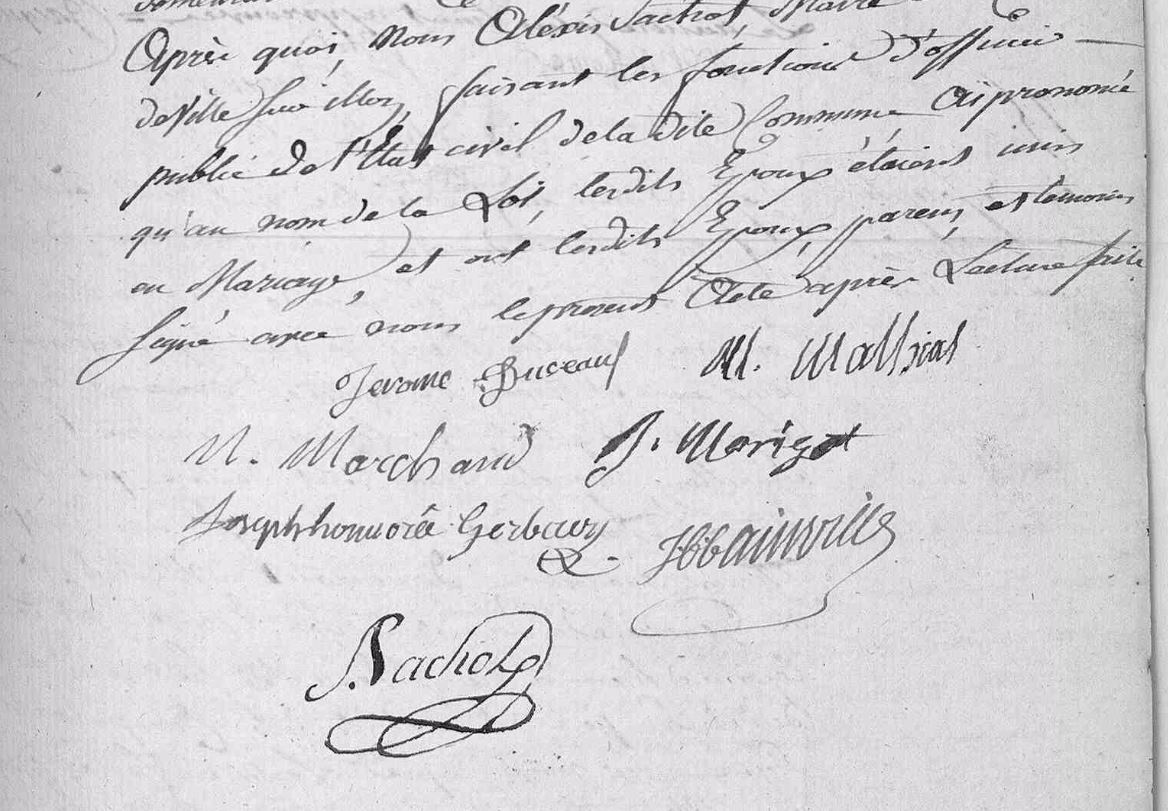 Après quoi, Nous Alexis Sachot, Maire
de Ville sur illon, faisant les fonctions d'officier
public de l'État civil de la dite Commune, Ai prononcé
qu'au nom de la Loi, lesdits Epoux étaient unis
en Mariage, et ont lesdits Epoux, parens, et témoins
signé avec nous le present Acte après Lecture faite
Jerome Buceau M. Mathias
N. Marchand J. Morizot
Joseph honnorée Gerbaux
Hbbainville
Sachot